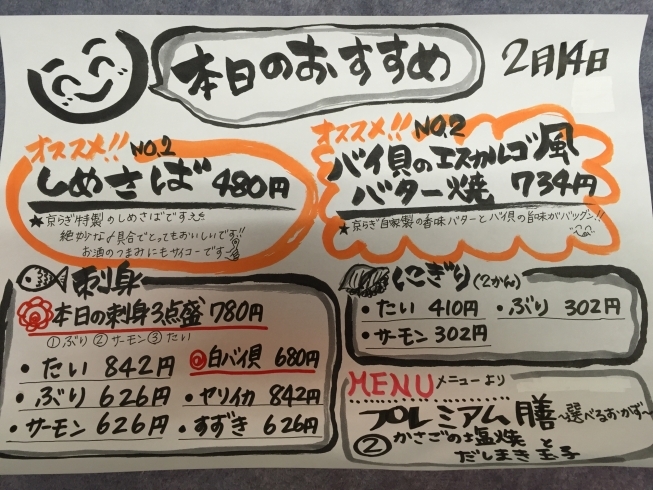 本日のおすすめ
2月14日
オススメ!! NO.1
しめさば 480円
★京らぎ特製のしめさばですえ
絶妙な〆具合でとってもおいしいです!!
お酒のつまみにもサイコーです
オススメ!! NO.2
バイ貝のエスカルゴ風
バター焼 734円
★京らぎ自家製の香味バターとバイ貝の旨味がバツグン!!
刺身
本日の刺身3点盛 780円
①ぶり ②サーモン ③たい
・たい 842円
◎白バイ貝 680円
・ぶり 626円
・ヤリイカ 842円
・サーモン 626円
・すずき 626円
にぎり(2かん)
・たい 410円
・ぶり 302円
・サーモン 302円
MENU メニューより
プレミアム膳 〜選べるおかず〜
② かさごの塩焼と
だしまき玉子